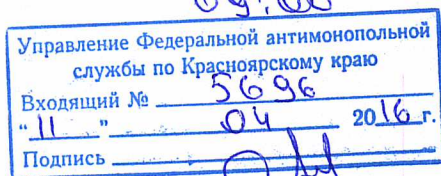 09:00
Управление Федеральной антимонопольной
службы по Красноярскому краю
Входящий № 5696
"11" 04 2016 г.
Подпись